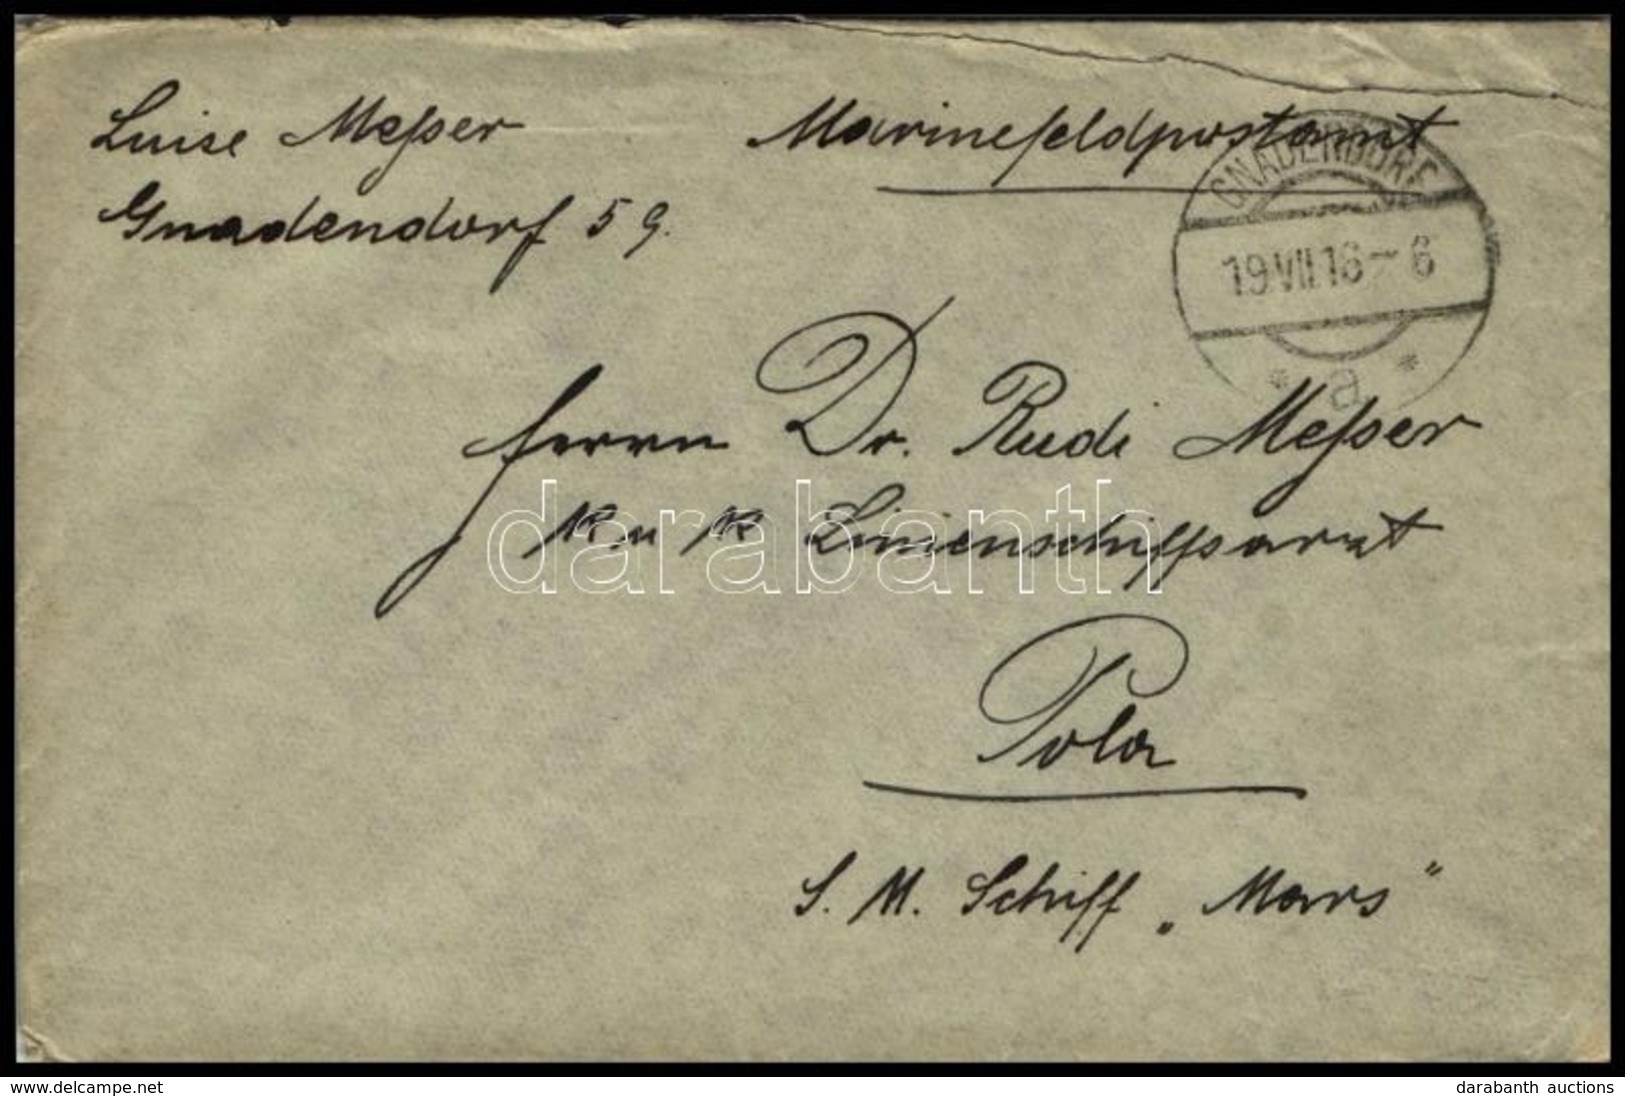 Luise Meſser
Marinefeldpostamt
Gnadendorf 59.
GNADENDORF
19.VII.16-6
* a *
Herrn Dr. Rudi Meſser
K u K Linienschiffsarzt
darabanth
Pola
S. M. Schiff „Mars"
www.delcampe.net
darabanth auctions